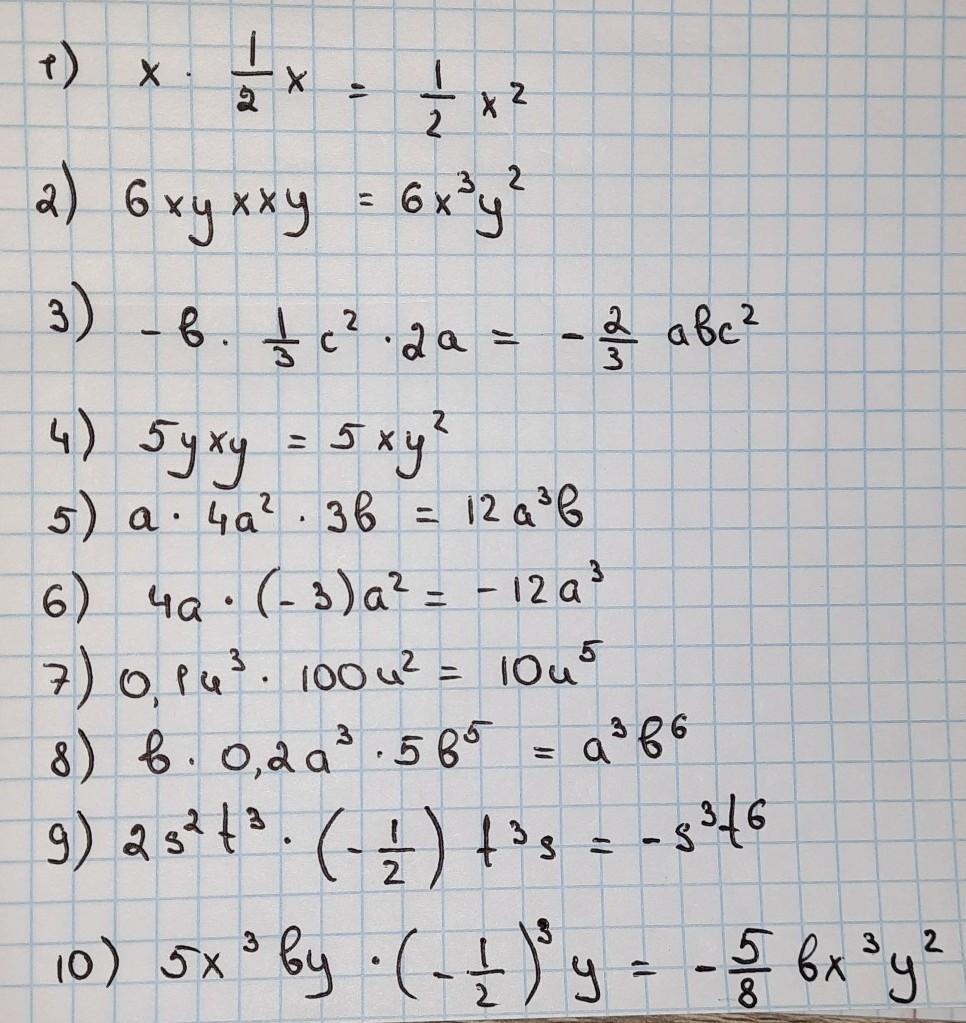 1) x · 1/2 x = 1/2 x²
2) 6xyxxy = 6x³y²
3) -b · 1/3 c² · 2a = -2/3 abc²
4) 5yxy = 5xy²
5) a · 4a² · 3b = 12a³b
6) 4a · (-3)a² = -12a³
7) 0,1u³ · 100u² = 10u⁵
8) b · 0,2a³ · 5b⁵ = a³b⁶
9) 2s²t³ · (-1/2) t³s = -s³t⁶
10) 5x³by · (-1/2)³ y = -5/8 bx³y²